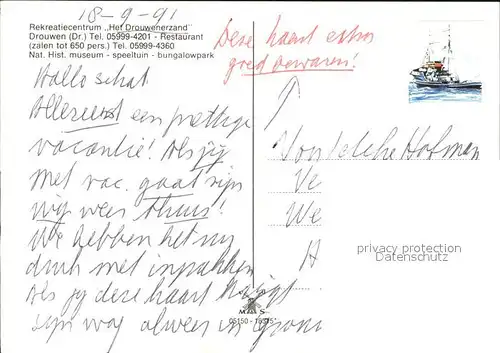 18-9-91
Rekreatiecentrum „Het Drouwenerzand"
Drouwen (Dr.) Tel. 05999-4201 - Restaurant
(zalen tot 650 pers.) Tel. 05999-4360
Nat. Hist. museum - speeltuin - bungalowpark
Deze kaart extra
goed bewaren!
Hallo schat
Allereerst een prettige
vacantie! Als jij
met vac. gaat zijn
wij weer thuis!
We hebben het nu
druk met inpakken
Als jij deze kaart krijgt
zijn wij alweer in
Hofman
Ve
We
A
privacy protection
Datenschutz
MMS
05150 -